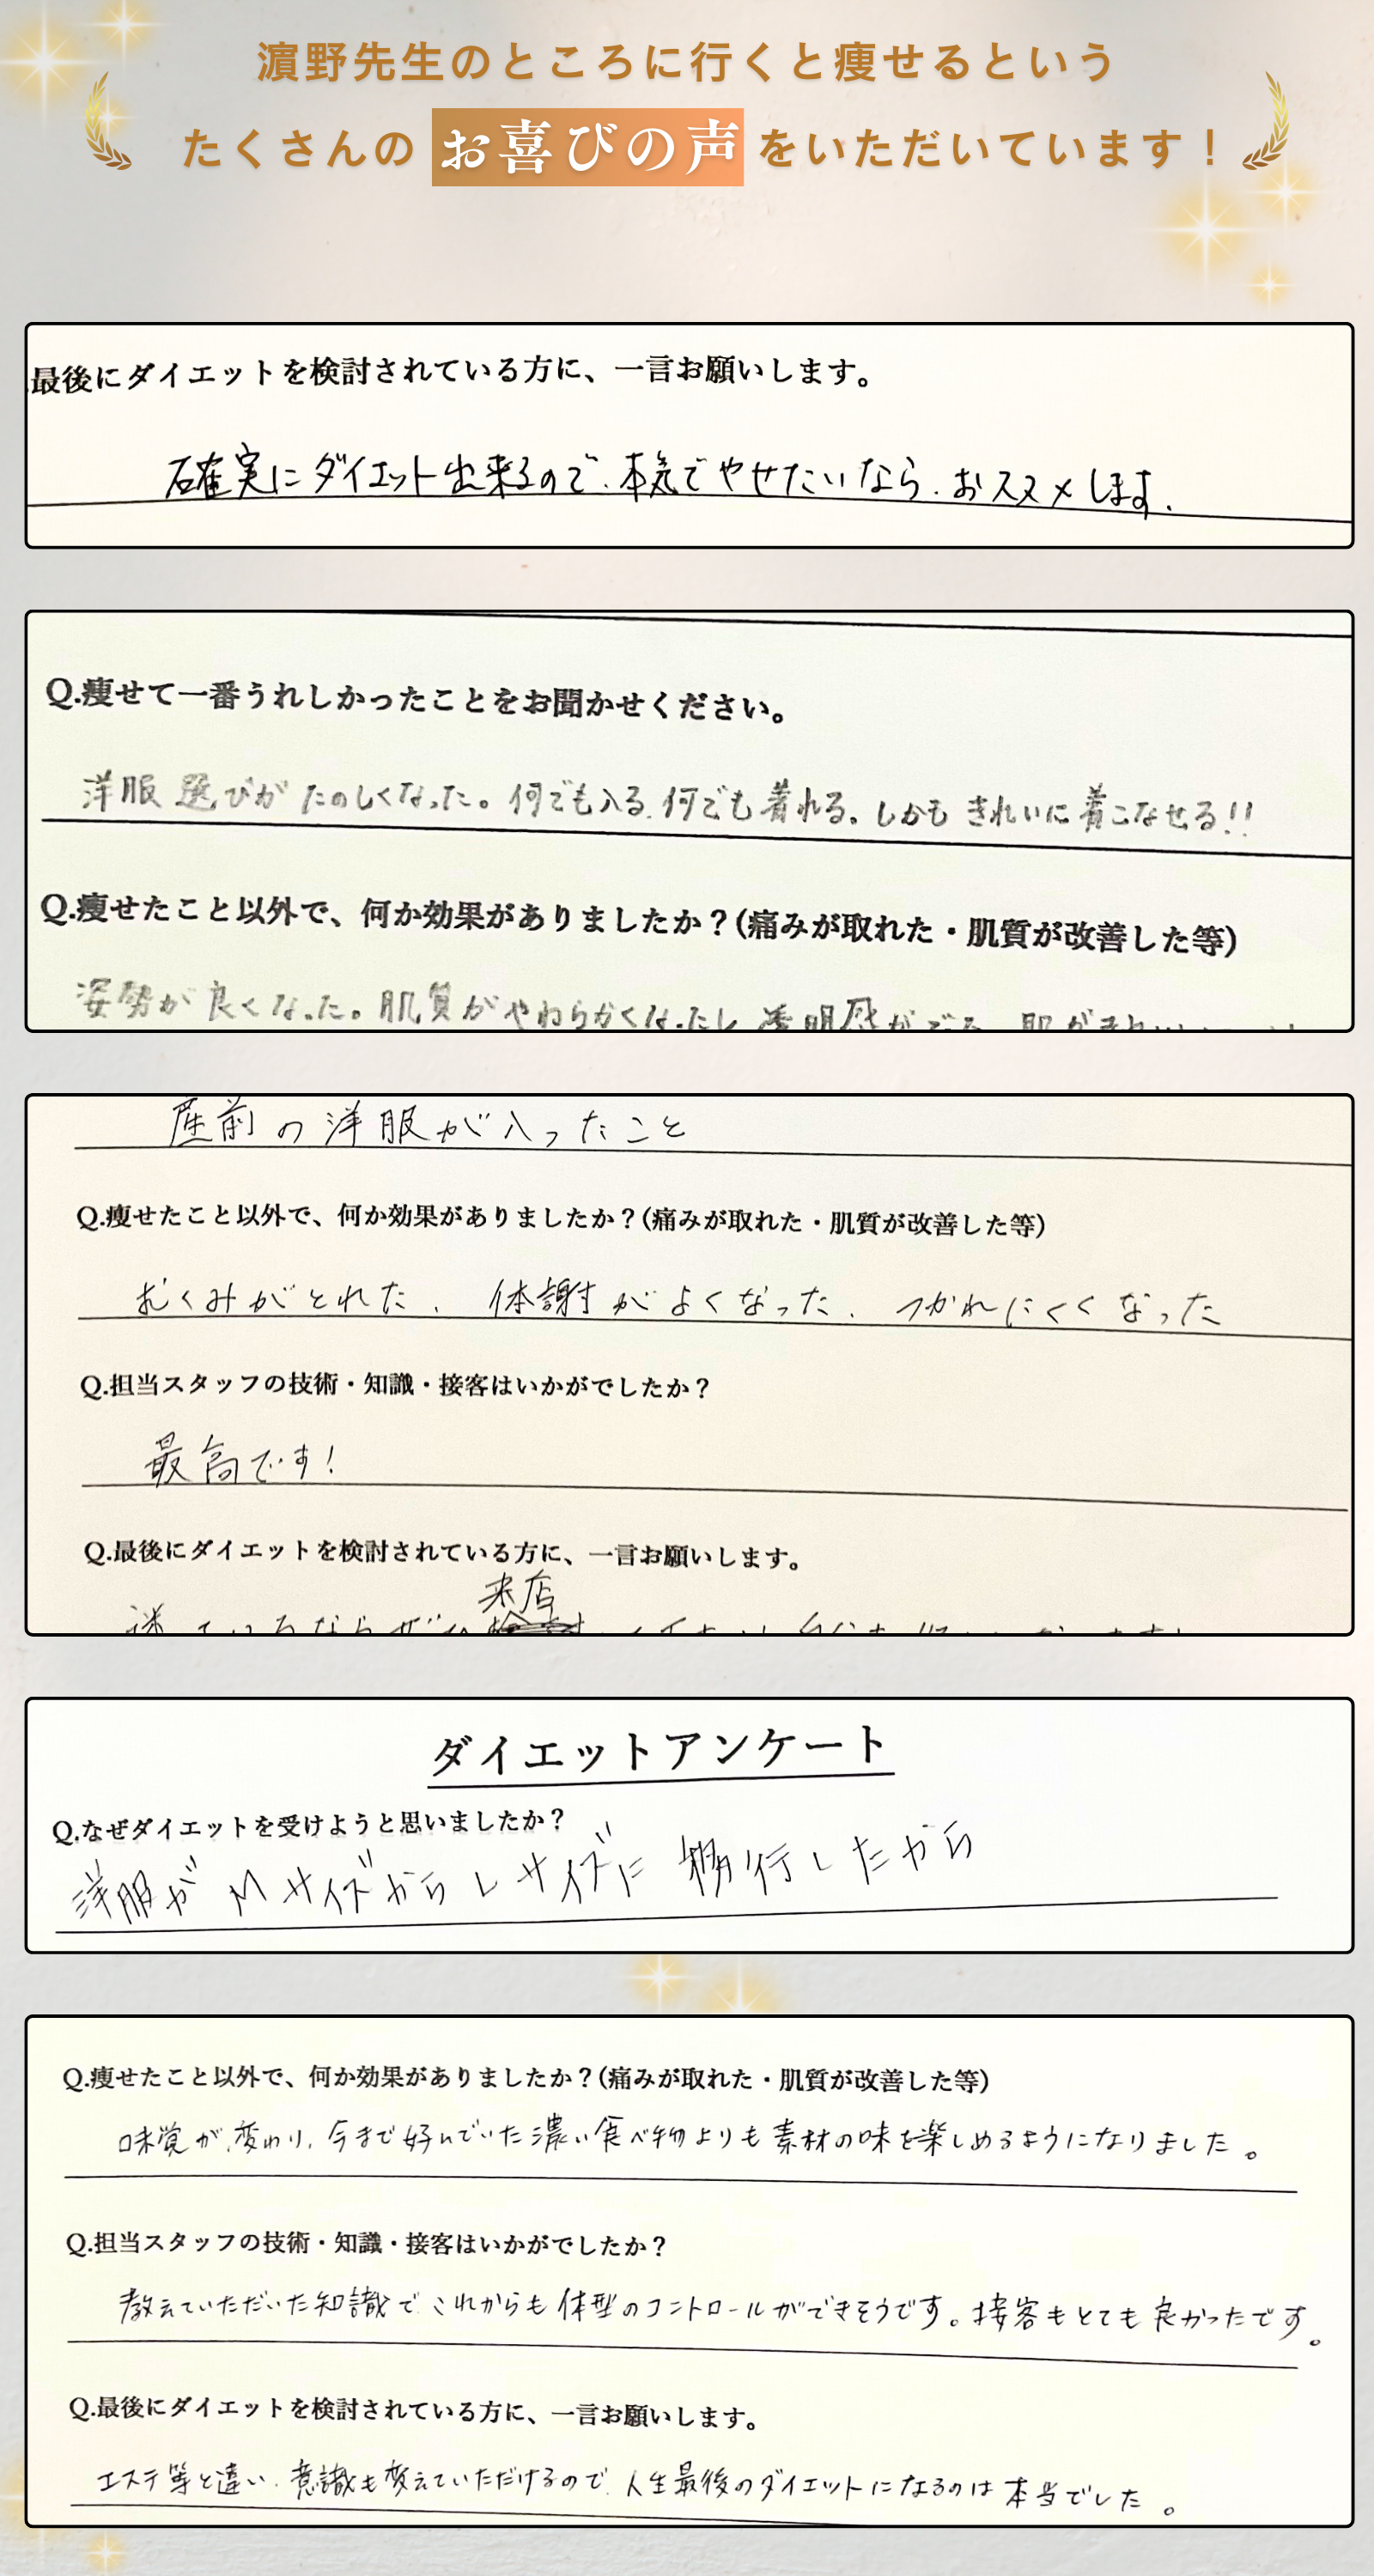 濵野先生のところに行くと痩せるという
たくさんのお喜びの声をいただいています！
最後にダイエットを検討されている方に、一言お願いします。
確実にダイエット出来るので、本気でやせたいなら、おススメします。
Q.痩せて一番うれしかったことをお聞かせください。
洋服選びがたのしくなった。何でも入る、何でも着れる。しかもきれいに着こなせる!!
Q.痩せたこと以外で、何か効果がありましたか？(痛みが取れた・肌質が改善した等)
姿勢が良くなった。肌質がやわらかくなったし透明感が
産前の洋服が入ったこと
Q.痩せたこと以外で、何か効果がありましたか？(痛みが取れた・肌質が改善した等)
むくみがとれた、体謝がよくなった、つかれにくくなった
Q.担当スタッフの技術・知識・接客はいかがでしたか？
最高です！
Q.最後にダイエットを検討されている方に、一言お願いします。
来店
ダイエットアンケート
Q.なぜダイエットを受けようと思いましたか？
洋服がMサイズからLサイズに移行したから
Q.痩せたこと以外で、何か効果がありましたか？(痛みが取れた・肌質が改善した等)
味覚が変わり、今まで好んでいた濃い食べ物よりも素材の味を楽しめるようになりました。
Q.担当スタッフの技術・知識・接客はいかがでしたか？
教えていただいた知識で、これからも体型のコントロールができそうです。接客もとても良かったです。
Q.最後にダイエットを検討されている方に、一言お願いします。
エステ等と違い、意識も変えていただけるので、人生最後のダイエットになるのは本当でした。